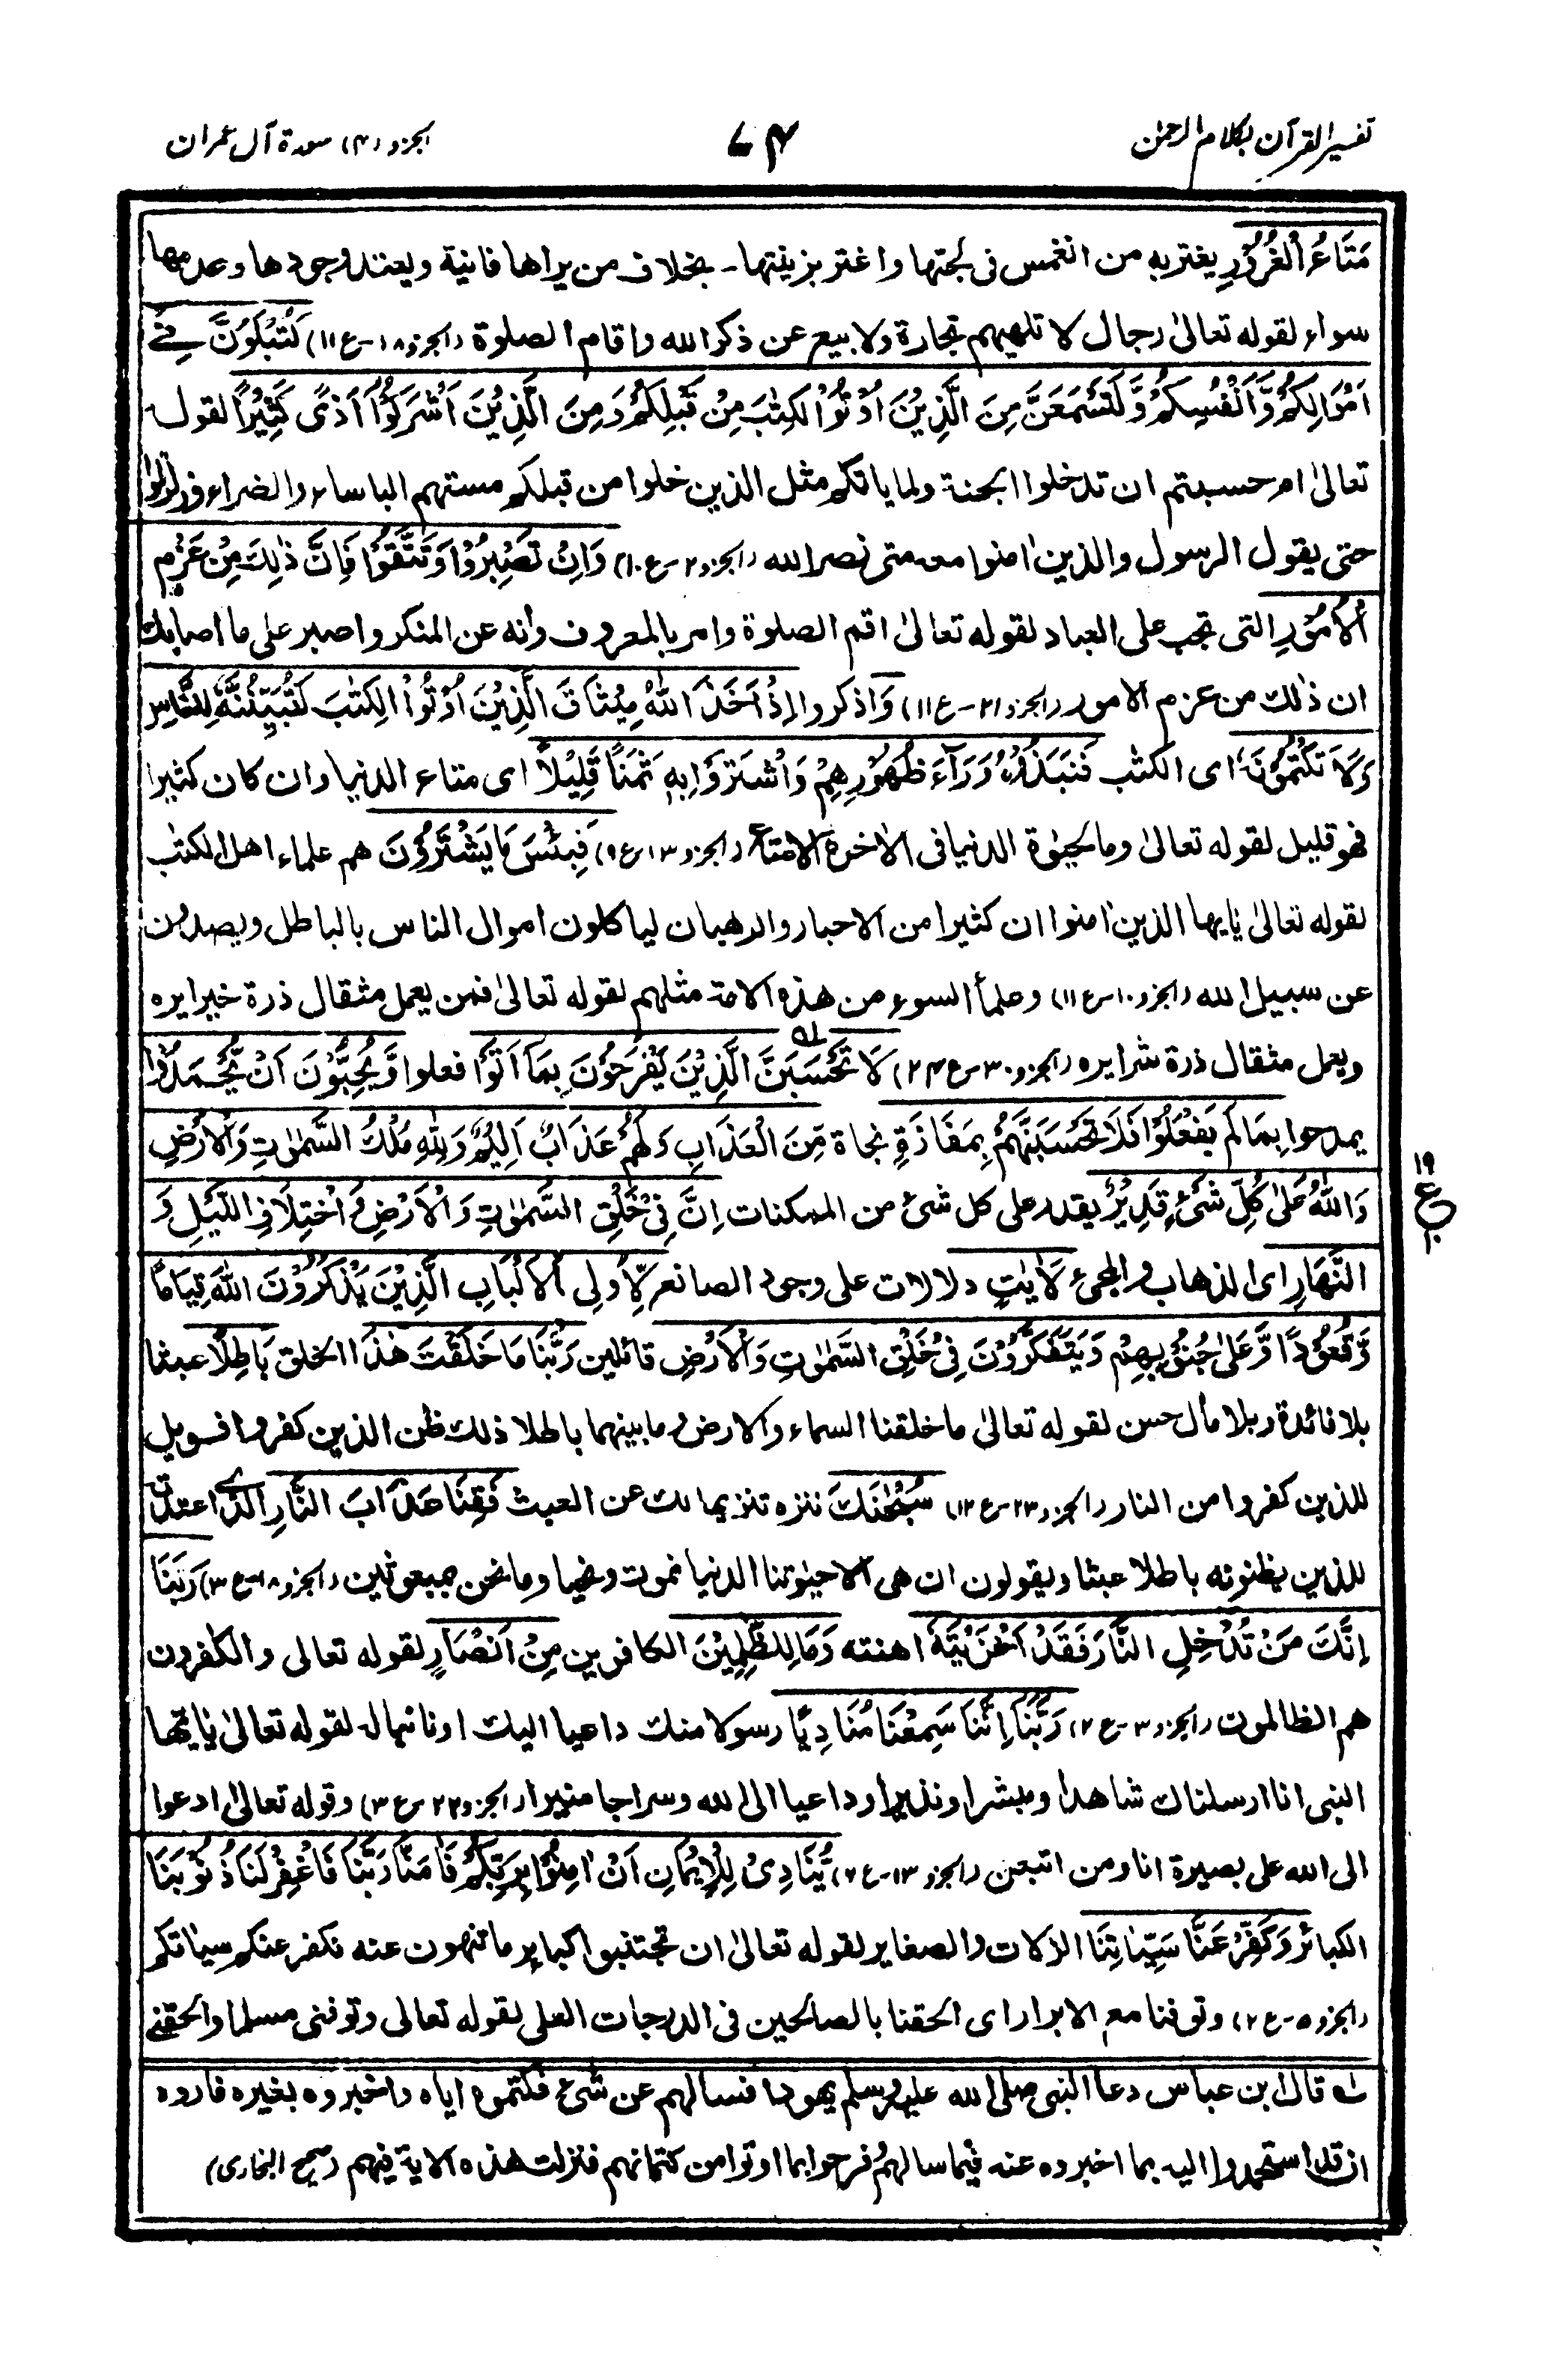 تفسير القرآن بكلام الرحمن
۷۴
الجزو (۴) سورة آل عمران
مَتَاعُ الْغُرُوْرِ يغتر به من انغمس فى لجتها واغتر بزينتها۔ بخلاف من يراها فانية ويعتد وجودها وعدمها
سواء لقوله تعالىٰ رجال لا تلهيهم تجارة ولا بيع عن ذكر الله واقام الصلوة (الجزو ۱۸-ع۱۱) لَتُبْلَوُنَّ فِىْ
اَمْوَالِكُمْ وَاَنْفُسِكُمْ وَلَتَسْمَعُنَّ مِنَ الَّذِيْنَ اُوْتُوا الْكِتٰبَ مِنْ قَبْلِكُمْ وَمِنَ الَّذِيْنَ اَشْرَكُوْۤا اَذًى كَثِيْرًا لقوله
تعالىٰ ام حسبتم ان تدخلوا الجنة ولما ياتكم مثل الذين خلوا من قبلكم مستهم الباساء والضراء وزلزلوا
حتى يقول الرسول والذين اٰمنوا معه متى نصر الله (الجزو ۲-ع۱۰) وَاِنْ تَصْبِرُوْا وَتَتَّقُوْا فَاِنَّ ذٰلِكَ مِنْ عَزْمِ
الْاُمُوْرِ التى تجب على العباد لقوله تعالىٰ اقم الصلوة وامر بالمعروف وانه عن المنكر واصبر على ما اصابك
ان ذٰلك من عزم الامور (الجزو ۲۱-ع۱۱) وَاذكروا اِذْ اَخَذَ اللّٰهُ مِيْثَاقَ الَّذِيْنَ اُوْتُوا الْكِتٰبَ لَتُبَيِّنُنَّهٗ لِلنَّاسِ
وَلَا تَكْتُمُوْنَهٗ اى الكتٰب فَنَبَذُوْهُ وَرَآءَ ظُهُوْرِهِمْ وَاشْتَرَوْا بِهٖ ثَمَنًا قَلِيْلًا اى متاع الدنيا وان كان كثيرا
فهو قليل لقوله تعالىٰ وما الحيٰوة الدنيا فى الاٰخرة الا متاع (الجزو ۱۳-ع۹) فَبِئْسَ مَا يَشْتَرُوْنَ هم علماء اهل الكتٰب
لقوله تعالىٰ يٰايها الذين اٰمنوا ان كثيرا من الاحبار والرهبان لياكلون اموال الناس بالباطل ويصدون
عن سبيل الله (الجزو ۱۰-ع۱۱) وعلمأ السوء من هذه الامة مثلهم لقوله تعالىٰ فمن يعمل مثقال ذرة خيرا يره
ويعمل مثقال ذرة شرا يره (الجزو ۳۰-ع۲۴) لَا تَحْسَبَنَّ الَّذِيْنَ يَفْرَحُوْنَ بِمَاۤ اَتَوْا فعلوا وَّيُحِبُّوْنَ اَنْ يُّحْمَدُوْا
يمدحوا بِمَا لَمْ يَفْعَلُوْا فَلَا تَحْسَبَنَّهُمْ بِمَفَازَةٍ نجاة مِّنَ الْعَذَابِ وَلَهُمْ عَذَابٌ اَلِيْمٌ وَلِلّٰهِ مُلْكُ السَّمٰوٰتِ وَالْاَرْضِ
وَاللّٰهُ عَلٰى كُلِّ شَىْءٍ قَدِيْرٌ يقدر على كل شئ من الممكنات اِنَّ فِىْ خَلْقِ السَّمٰوٰتِ وَالْاَرْضِ وَاخْتِلَافِ اللَّيْلِ وَ
۱۹ ع ۱۰
النَّهَارِ اى الذهاب والمجئ لَاٰيٰتٍ دلالات على وجود الصانع لِّاُولِى الْاَلْبَابِ الَّذِيْنَ يَذْكُرُوْنَ اللّٰهَ قِيَامًا
وَّقُعُوْدًا وَّعَلٰى جُنُوْبِهِمْ وَيَتَفَكَّرُوْنَ فِىْ خَلْقِ السَّمٰوٰتِ وَالْاَرْضِ قائلين رَبَّنَا مَا خَلَقْتَ هٰذَا الخلق بَاطِلًا عبثا
بلا فائدة وبلا مأل حسن لقوله تعالىٰ ما خلقنا السماء والارض وما بينهما باطلا ذلك ظن الذين كفروا فويل
للذين كفروا من النار (الجزو ۲۳-ع۱۲) سُبْحٰنَكَ ننزه تنزيها لك عن العبث فَقِنَا عَذَابَ النَّارِ الذى اعتدت
للذين يظنونه باطلا عبثا ويقولون ان هى الا حيٰوتنا الدنيا نموت ونحيا وما نحن بمبعوثين (الجزو ۱۸-ع۳) رَبَّنَاۤ
اِنَّكَ مَنْ تُدْخِلِ النَّارَ فَقَدْ اَخْزَيْتَهٗ اهنته وَمَا لِلظّٰلِمِيْنَ الكافرين مِنْ اَنْصَارٍ لقوله تعالى والكٰفرون
هم الظالمون (الجزو ۳-ع۲) رَبَّنَاۤ اِنَّنَا سَمِعْنَا مُنَادِيًا رسولا منك داعيا اليك او نائبا له لقوله تعالىٰ يٰايها
النبى انا ارسلناك شاهدا ومبشرا ونذيرا وداعيا الى الله وسراجا منيرا (الجزو ۲۲-ع۳) وقوله تعالىٰ ادعوا
الى الله على بصيرة انا ومن اتبعن (الجزو ۱۳-ع۶) يُّنَادِىْ لِلْاِيْمَانِ اَنْ اٰمِنُوْا بِرَبِّكُمْ فَاٰمَنَّا رَبَّنَا فَاغْفِرْ لَنَا ذُنُوْبَنَا
الكبائر وَكَفِّرْ عَنَّا سَيِّاٰتِنَا الزلات والصغاير لقوله تعالىٰ ان تجتنبوا كباير ما تنهون عنه نكفر عنكم سياتكم
(الجزو ۵-ع۲) وتوفنا مع الابرار اى الحقنا بالصالحين فى الدرجات العلى لقوله تعالى وتوفنى مسلما والحقنى
له قال ابن عباس دعا النبى صلى الله عليه وسلم يهودا فسالهم عن شئ فكتموه اياه واخبروه بغيره فاروه
ان قد استحمدوا اليه بما اخبروه عنه فيما سالهم وفرحوا بما اوتوا من كتمانهم فنزلت هذه الاية فيهم (صحيح البخارى)